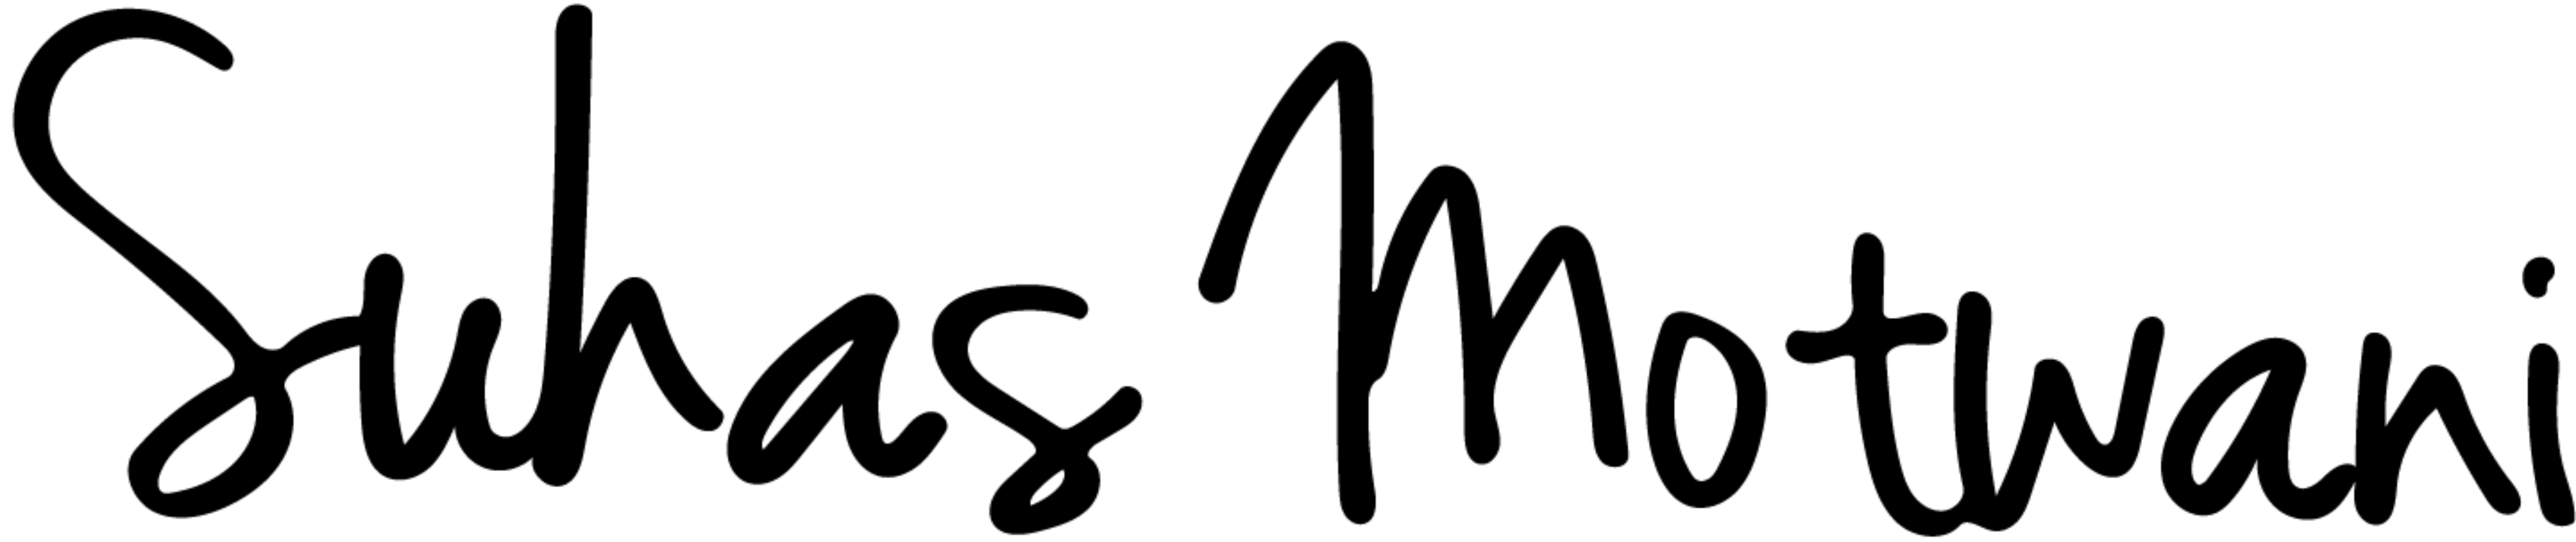 Suhas Motwani